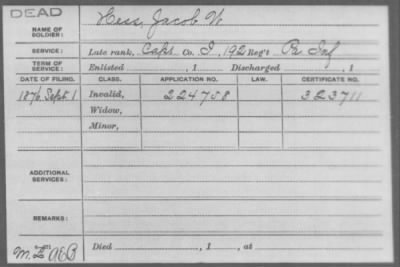 DEAD
NAME OF SOLDIER: Hess, Jacob W
SERVICE: Late rank, Capt Co. I, 192 Reg't Pa Inf
TERM OF SERVICE: Enlisted , 1 Discharged , 1
DATE OF FILING. CLASS. APPLICATION NO. LAW. CERTIFICATE NO.
1876 Sept. 1 Invalid, 224758 323711
Widow,
Minor,
ADDITIONAL SERVICES:
REMARKS:
Died , 1 , at